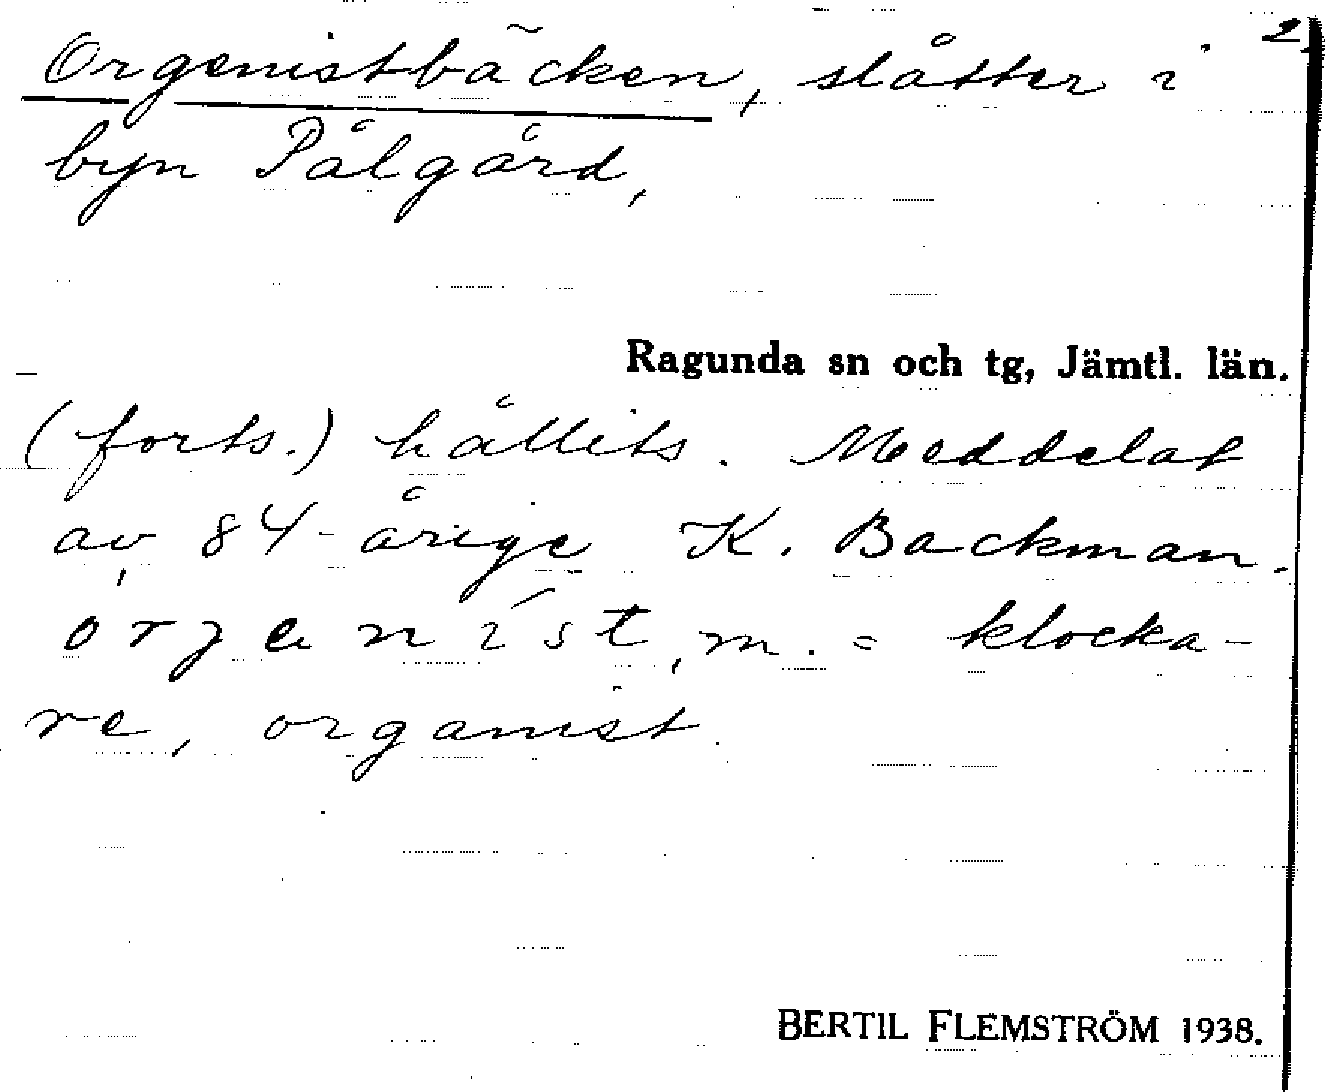 2.
Orgenistbäcken, slåtter i
byn Pålgård,
Ragunda sn och tg, Jämtl. län.
(forts.) hållits. Meddelat
av 84-årige K. Backman.
orgenist, m. = klocka-
re, organist.
BERTIL FLEMSTRÖM 1938.